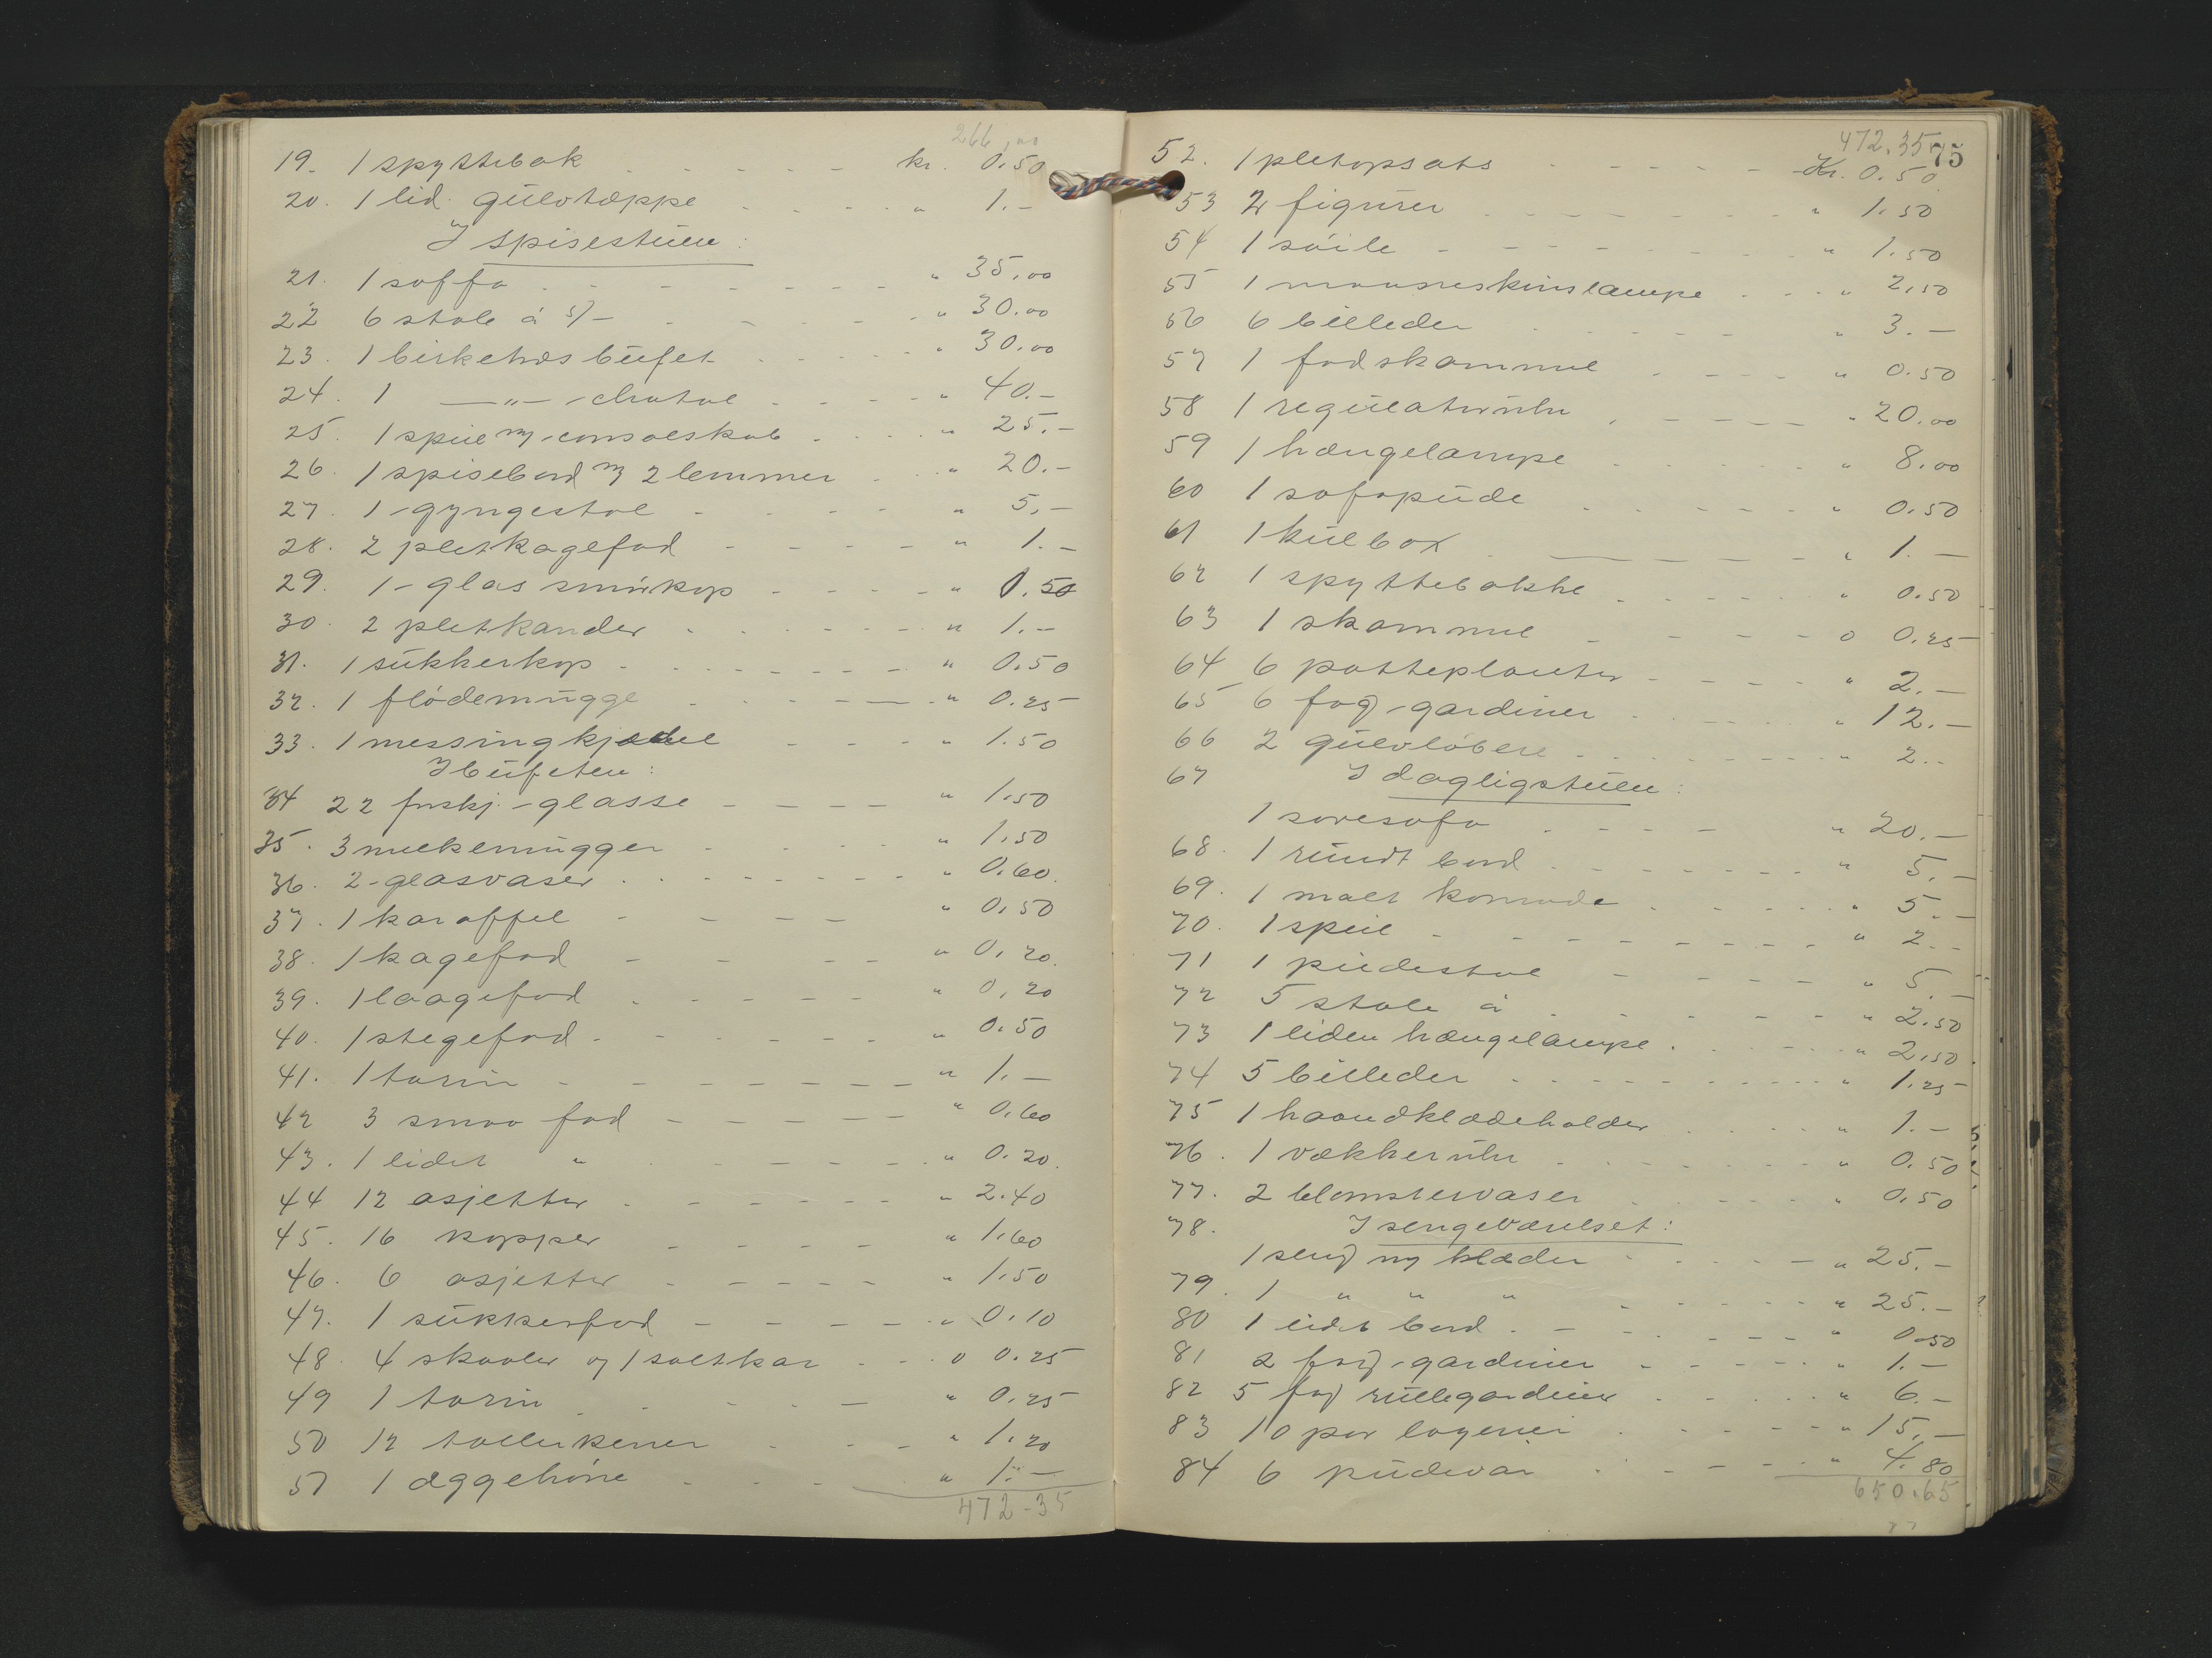 266,00
19. 1 spyttebak - - - - - kr. 0.50
20. 1 lid. gülvtæppe - - - - " 1.-
I spisestüen:
21. 1 soffa - - - - - " 35.00
22 6 stole á 5/- - - - - " 30.00
23. 1 birketræs büfet - - - - " 30.00
24. 1 —"— chatol - - - - " 40.-
25. 1 speil m/ consolskab - - - " 25.-
26. 1 spisebord m/ 2 lemmer - - " 20.-
27. 1 gyngestol - - - - " 5.-
28. 2 pletkagefad - - - - " 1.-
29. 1 glas smörkop - - - - " 0.50
30. 2 pletkander - - - - " 1.-
31. 1 sükkerkop - - - - " 0.50
32. 1 flödemügge - - - - " 0.25
33. 1 messingkjedel - - - " 1.50
I büfeten:
34 22 forskj. glasse - - - - " 1.50
35. 3 melkemügger - - - - " 1.50
36. 2 glasvaser - - - - " 0.60
37. 1 karaffel - - - - " 0.50
38. 1 kagefad - - - - " 0.20
39. 1 laagefad - - - - " 0.20
40. 1 stegefad - - - - " 0.50
41. 1 tarin - - - - " 1.-
42 3 smaa fad - - - - " 0.60
43. 1 lidet " - - - - " 0.20
44 12 asjetter - - - - " 2.40
45. 16 kopper - - - - " 1.60
46. 6 asjetter - - - - " 1.50
47. 1 sükkerfad - - - - " 0.10
48. 4 skaaler og 1 saltkar - - " 0.25
49 1 tarin - - - - " 0.25
50 12 tallerkener - - - " 1.20
51 1 æggehöne - - - " 1.-
472-35
472.35 75
52. 1 pletopsats - - - - Kr. 0.50
53 2 figürer - - - - " 1.50
54 1 söile - - - - " 1.50
55 1 maaneskinslampe - - - " 2.50
56 6 billeder - - - - " 3.-
57 1 fodskammel - - - - " 0.50
58 1 regülatorühr - - - - " 20.00
59 1 hængelampe - - - - " 8.00
60 1 sofapüde - - - - " 0.50
61 1 külbox - - - - " 1.-
62 1 spyttebakke - - - - " 0.50
63 1 skammel - - - - " 0.25
64 6 potteplanter - - - - " 2.-
65 6 fag gardiner - - - - " 12.-
66 2 gülvlöbere - - - - " 2.-
67 I dagligstüen:
1 sovesofa - - - - " 20.-
68. 1 ründt bord - - - - " 5.-
69. 1 malt komode - - - - " 5.-
70. 1 speil - - - - " 2.-
71 1 püdestol - - - - " 5.-
72 5 stole á - - - - " 2.50
73 1 liden hængelampe - - - " 2.50
74 5 billeder - - - - " 1.25
75 1 haandklædeholder - - - " 1.-
76. 1 vækkerühr - - - - " 0.50
77. 2 blomstervaser - - - - " 0.50
78. I sengeværelset:
1 seng m/ klæder - - - - " 25.-
79. 1 " " " - - - - " 25.-
80 1 lidet bord - - - - " 0.50
81 2 fag gardiner - - - - " 1.-
82 5 fag rüllegardiner - - - - " 6.-
83 10 par lagener - - - - " 15.-
84 6 püdevar - - - - " 4.80
650.65